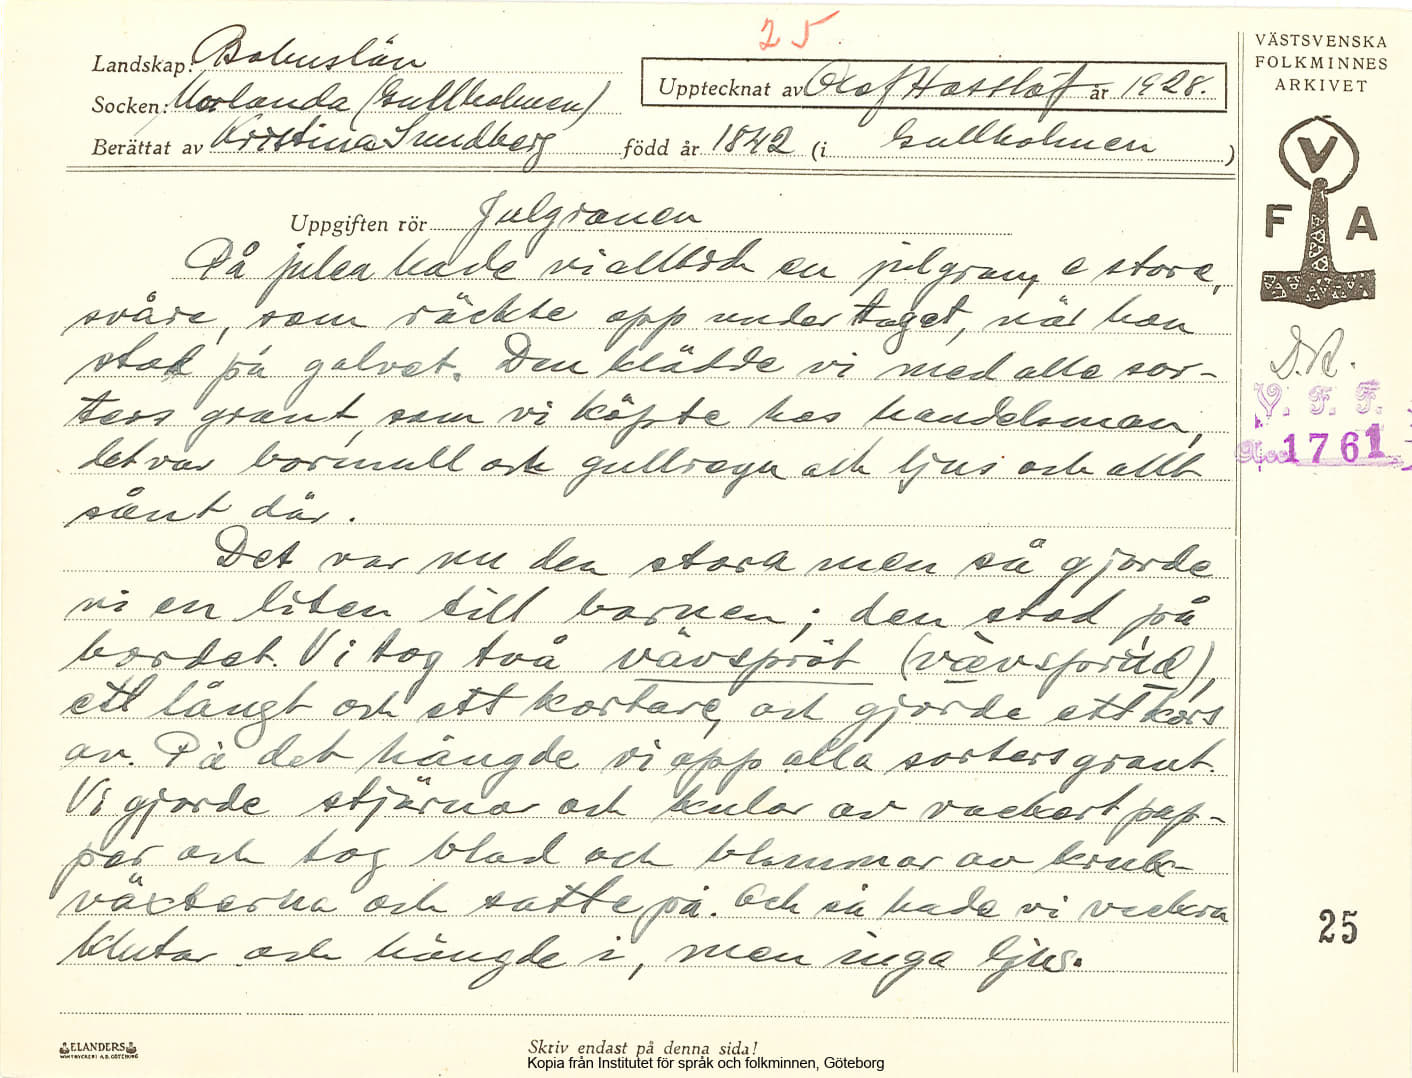 25
Landskap: Bohuslän
Socken: Morlanda (Gullholmen)
Berättat av Kristina Sundberg
Upptecknat av Olof Hasslöf år 1928.
född år 1842 (i Gullholmen)
VÄSTSVENSKA
FOLKMINNES
ARKIVET
V
F A
D.R.
V. F. F.
1761
Uppgiften rör Julgranen
På julea hade vi alltid en julgran, e store,
svåre, som räckte opp under taget, när han
stod på golvet. Den klädde vi med alle sor-
ters grant, som vi köpte hos handelsman,
det var bormull och gullregn och ljus och allt
sånt där.
Det var nu den stora men så gjorde
vi en liten till barnen; den stod på
bordet. Vi tog två vävspröt
ett långt och ett kortare, och gjorde ett kors
av. På det hängde vi opp alla sorters grant.
Vi gjorde stjärnor och kulor av vackert pap-
per och tog blad och blommor av kruk-
växterna och satte på. Och så hade vi vackra
klutar och hängde i, men inga ljus.
25
ELANDERS
Skriv endast på denna sida!
Kopia från Institutet för språk och folkminnen, Göteborg